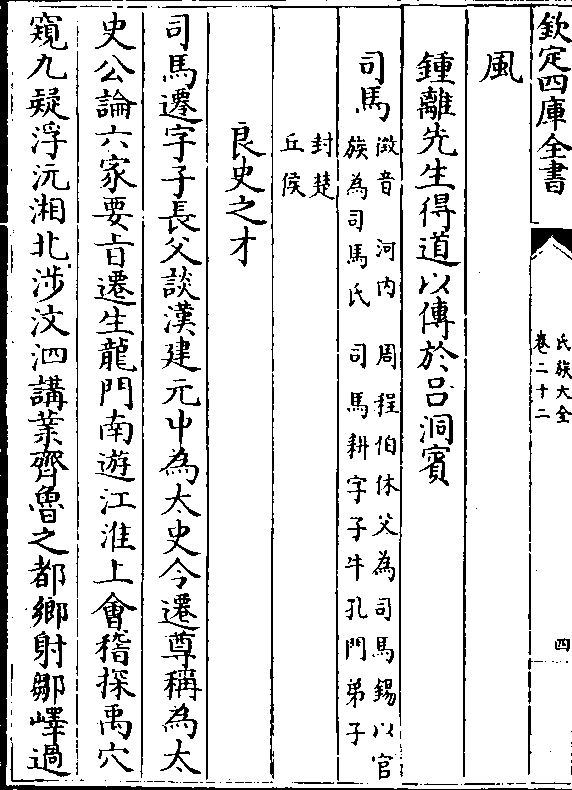 欽定四庫全書
氏族大全
卷二十二
四
風
鍾離先生得道以傳於呂洞賓
司馬
徵音 河内 周程伯休父為司馬錫以官
族為司馬氏 司馬耕字子牛孔門弟子
封楚
丘侯
良史之才
司馬遷字子長父談漢建元中為太史令遷尊稱為太
史公論六家要旨遷生龍門南遊江淮上會稽探禹穴
窺九疑浮沅湘北涉汶泗講業齊魯之都鄉射鄒嶧過